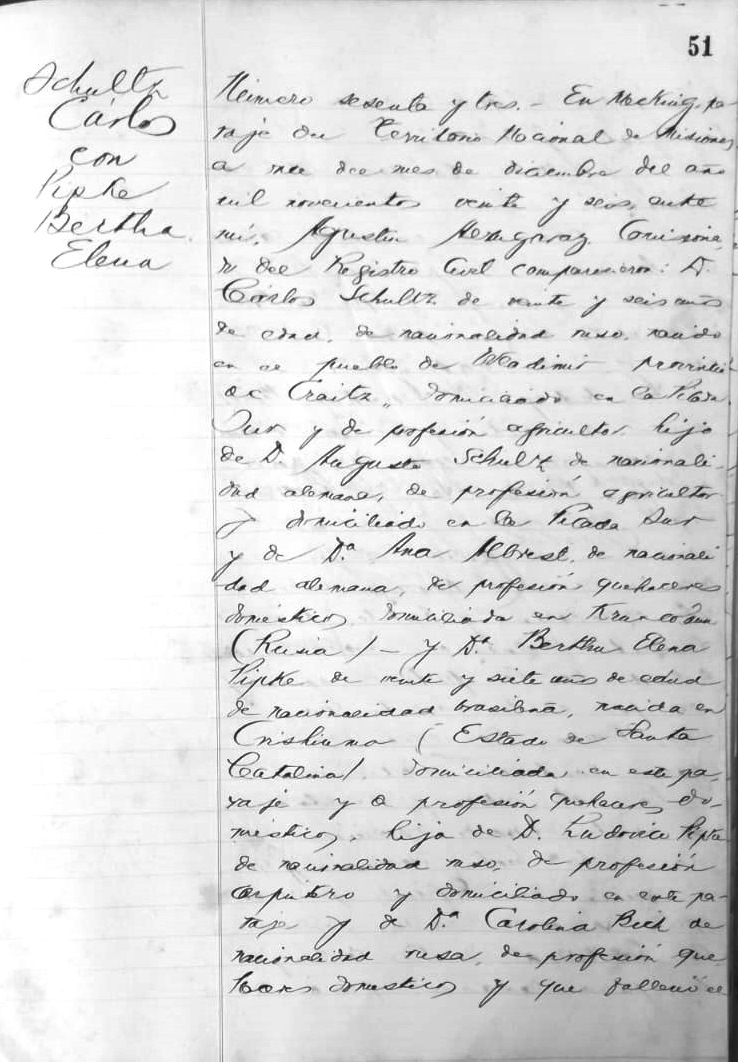 51
Schultz
Cárlos
con
Pipke
Bertha
Elena
Número sesenta y tres. - En Mecking, pa-
raje del Territorio Nacional de Misiones,
a once de mes de diciembre del año
mil novecientos veinte y seis, ante
mí, Agustin Comisiona-
do del Registro Civil comparecieron: D.
Cárlos Schultz de veinte y seis años
de edad, de nacionalidad ruso, nacido
en el pueblo de Wladimir provincia
de domiciliado en la Picada
Sur y de profesión agricultor hijo
de D. Augusto Schultz de nacionali-
dad alemana, de profesión agricultor
y domiciliado en la Picada Sur
y de Dª Ana Albrest, de nacionali
dad alemana, de profesión quehaceres
domésticos, domiciliada en
(Rusia) - y Dª Bertha Elena
Pipke de veinte y siete años de edad
de nacionalidad brasileña, nacida en
Cristiuma (Estado de Santa
Catalina) domiciliada en este pa-
raje y de profesión quehaceres do-
mésticos, hija de D. Ludovico Pipke
de nacionalidad ruso, de profesión
carpintero y domiciliado en este pa-
raje y de Dª Carolina de
nacionalidad rusa, de profesión que
domesticos y que falleció el